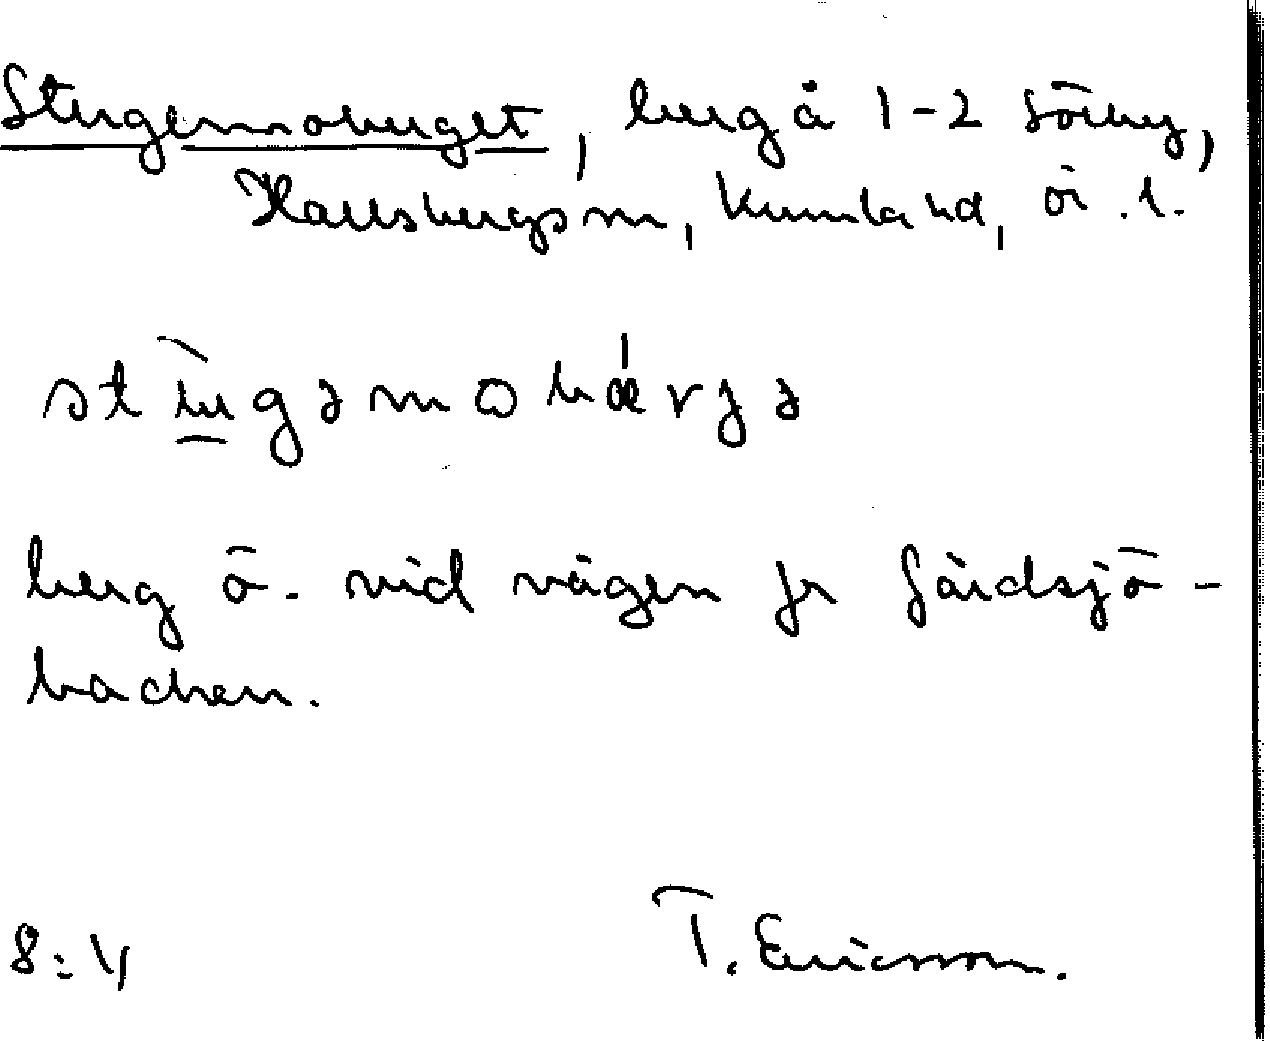 Stugemoberget, berg å 1-2 Sörby,
Hallsbergs sn, Kumla hd, Ör. l.
berg ö. vid vägen fr Gärdsjö-
backen.
8:4 T. Ericsson.